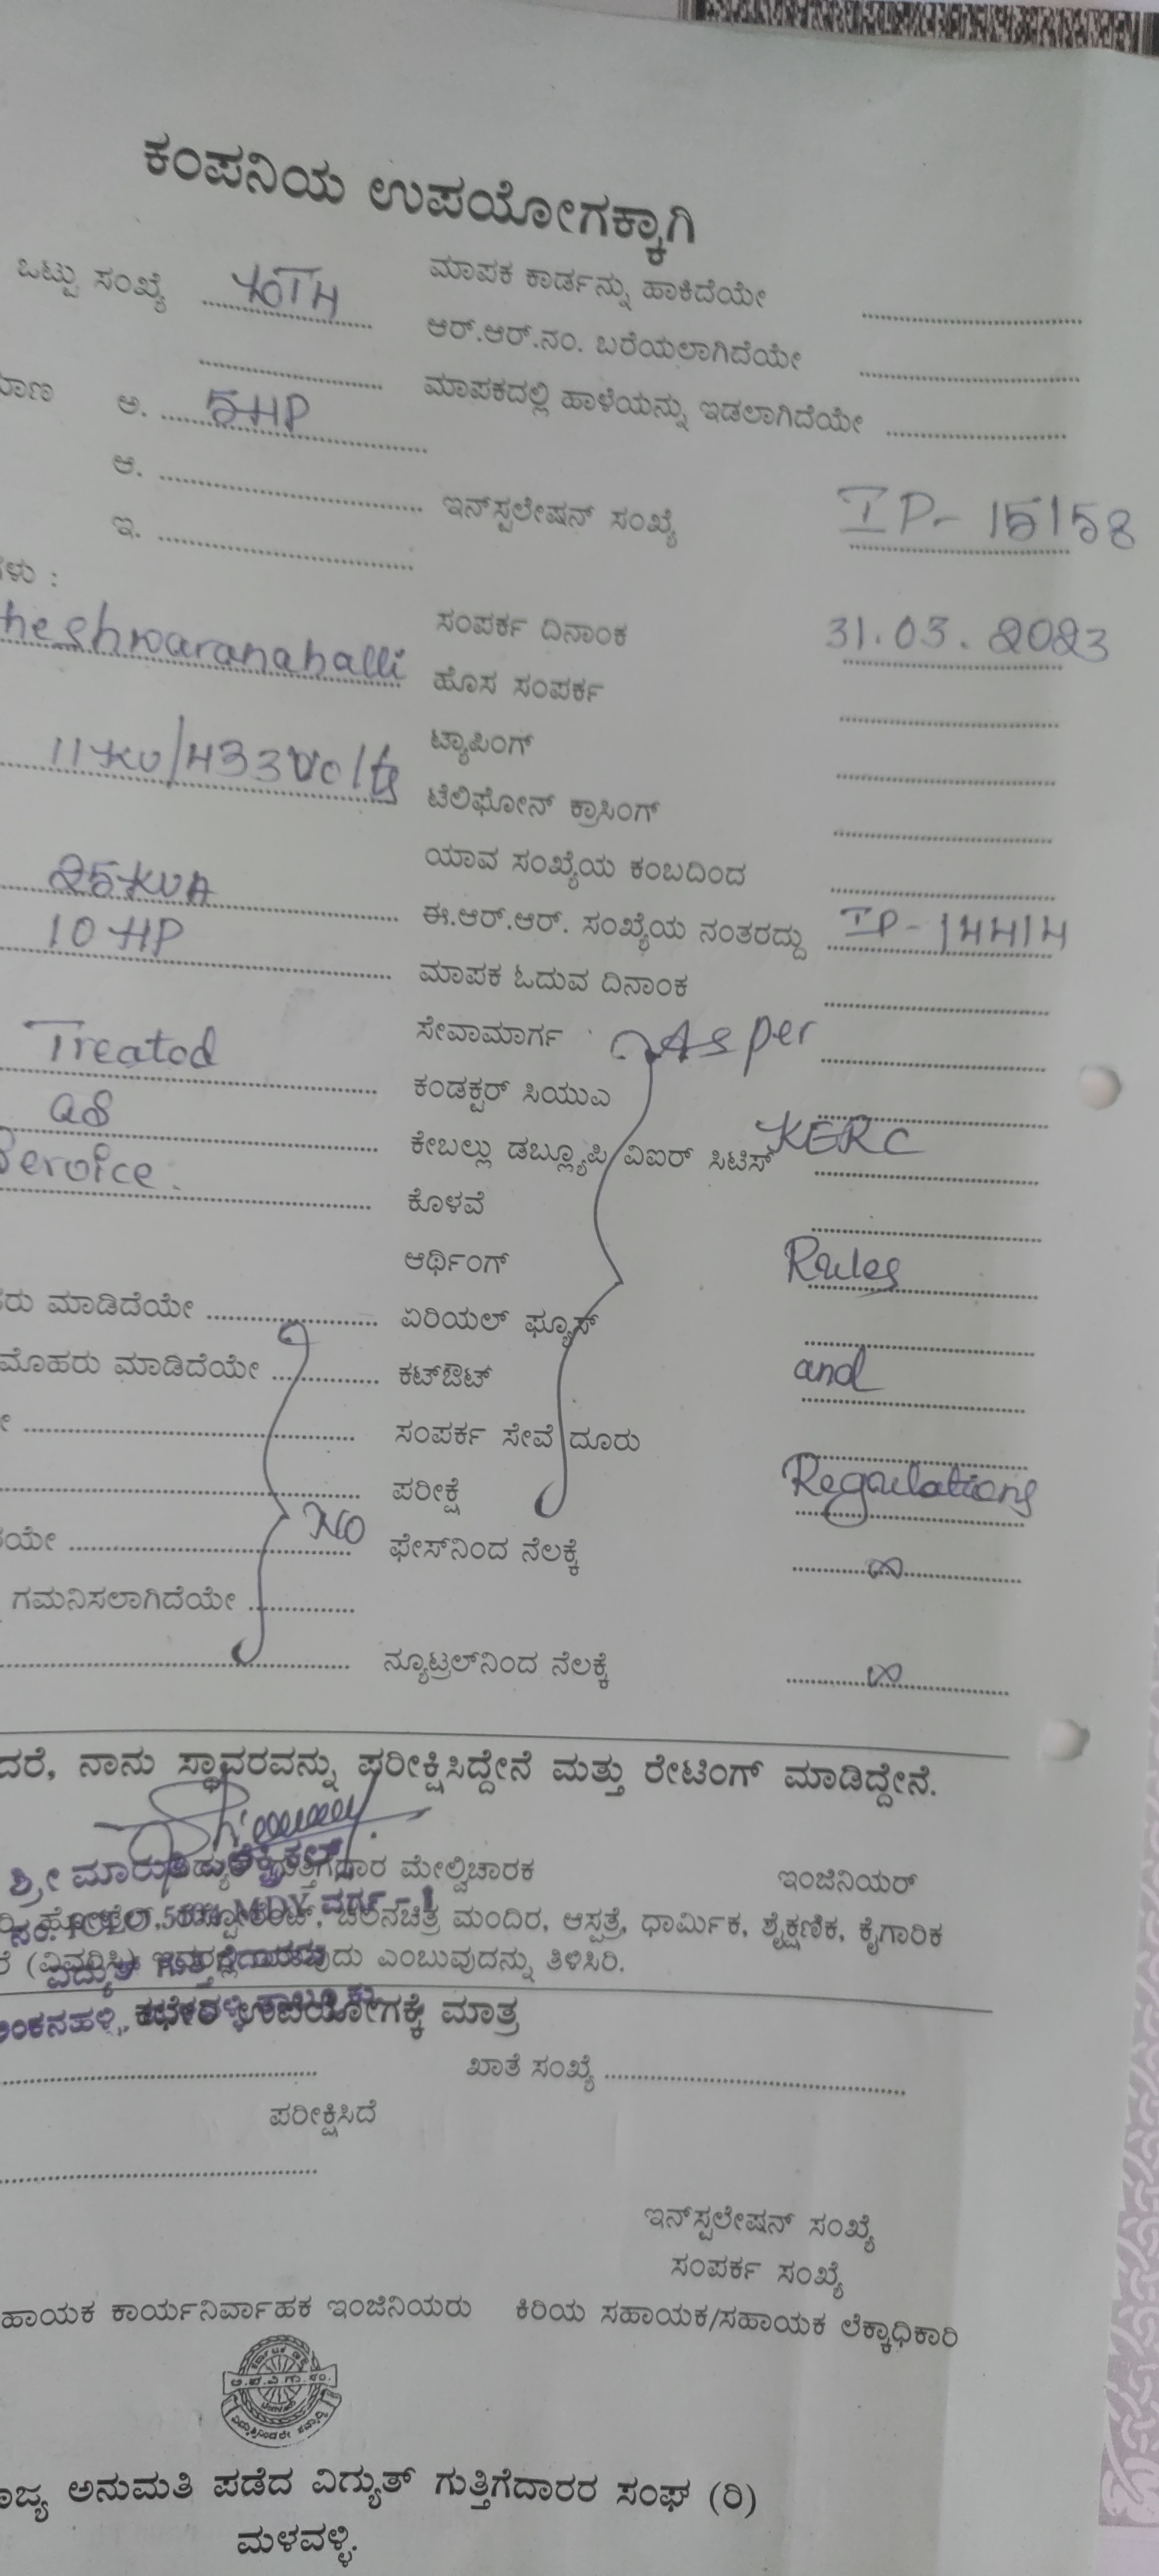 ಕಂಪನಿಯ ಉಪಯೋಗಕ್ಕಾಗಿ
ಒಟ್ಟು ಸಂಖ್ಯೆ ಮಾಪಕ ಕಾರ್ಡನ್ನು ಹಾಕಿದೆಯೇ
ಆರ್.ಆರ್.ನಂ. ಬರೆಯಲಾಗಿದೆಯೇ
ಅ. 5HP ಮಾಪಕದಲ್ಲಿ ಹಾಳೆಯನ್ನು ಇಡಲಾಗಿದೆಯೇ
ಆ. ಇನ್‌ಸ್ಟಲೇಷನ್ ಸಂಖ್ಯೆ IP- 15158
ಇ.
ಗಳು :
heshwaranahalli ಸಂಪರ್ಕ ದಿನಾಂಕ 31.03.2023
ಹೊಸ ಸಂಪರ್ಕ
11KV/433Volts ಟ್ಯಾಪಿಂಗ್
ಟೆಲಿಫೋನ್ ಕ್ರಾಸಿಂಗ್
25KVA ಯಾವ ಸಂಖ್ಯೆಯ ಕಂಬದಿಂದ
10 HP ಈ.ಆರ್.ಆರ್. ಸಂಖ್ಯೆಯ ನಂತರದ್ದು IP-14414
ಮಾಪಕ ಓದುವ ದಿನಾಂಕ
Treated ಸೇವಾಮಾರ್ಗ As per
as ಕಂಡಕ್ಟರ್ ಸಿಯುಎ
Service. ಕೇಬಲ್ಲು ಡಬ್ಲ್ಯೂಪಿ/ವಿಐರ್ ಸಿಟಿಸ್ KERC
ಕೊಳವೆ
ಆರ್ಥಿಂಗ್ Rules
ರು ಮಾಡಿದೆಯೇ ಏರಿಯಲ್ ಫ್ಯೂಸ್
ಮೊಹರು ಮಾಡಿದೆಯೇ ಕಟ್‌ಔಟ್ and
ಸಂಪರ್ಕ ಸೇವೆ ದೂರು
ಪರೀಕ್ಷೆ Regulations
ಯೇ No ಫೇಸ್‌ನಿಂದ ನೆಲಕ್ಕೆ ∞
ಗಮನಿಸಲಾಗಿದೆಯೇ
ನ್ಯೂಟ್ರಲ್‌ನಿಂದ ನೆಲಕ್ಕೆ ∞
ದರೆ, ನಾನು ಸ್ಥಾವರವನ್ನು ಪರೀಕ್ಷಿಸಿದ್ದೇನೆ ಮತ್ತು ರೇಟಿಂಗ್ ಮಾಡಿದ್ದೇನೆ.
ಶ್ರೀ ಮಾರುತಿ ಗುತ್ತಿಗೆದಾರ ಮೇಲ್ವಿಚಾರಕ ಇಂಜಿನಿಯರ್
MDY ವರ್ಗ - 1 ಚಲನಚಿತ್ರ ಮಂದಿರ, ಆಸ್ಪತ್ರೆ, ಧಾರ್ಮಿಕ, ಶೈಕ್ಷಣಿಕ, ಕೈಗಾರಿಕ
ಎಂಬುವುದನ್ನು ತಿಳಿಸಿರಿ.
ಕಛೇರಿ ಉಪಯೋಗಕ್ಕೆ ಮಾತ್ರ
ಖಾತೆ ಸಂಖ್ಯೆ
ಪರೀಕ್ಷಿಸಿದೆ
ಇನ್‌ಸ್ಟಲೇಷನ್ ಸಂಖ್ಯೆ
ಸಂಪರ್ಕ ಸಂಖ್ಯೆ
ಹಾಯಕ ಕಾರ್ಯನಿರ್ವಾಹಕ ಇಂಜಿನಿಯರು ಕಿರಿಯ ಸಹಾಯಕ/ಸಹಾಯಕ ಲೆಕ್ಕಾಧಿಕಾರಿ
ಜ್ಯ ಅನುಮತಿ ಪಡೆದ ವಿದ್ಯುತ್ ಗುತ್ತಿಗೆದಾರರ ಸಂಘ (ರಿ)
ಮಳವಳ್ಳಿ.